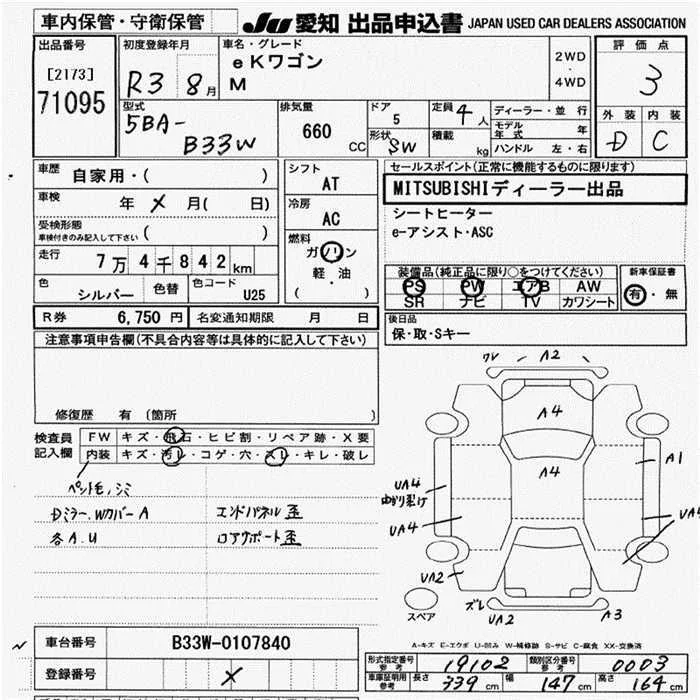 車内保管・守衛保管
JU 愛知 出品申込書 JAPAN USED CAR DEALERS ASSOCIATION
出品番号
[2173]
71095
初度登録年月
R3 8月
車名・グレード
eKワゴン
M
2WD
・
4WD
評価点
3
外装 内装
D C
型式
5BA-
B33W
排気量
660 CC
ドア
5
形状
SW
定員 4 人
積載 kg
ディーラー・並行
モデル年式 年
ハンドル 左・右
車歴 自家用・( )
車検 年 メ 月( 日)
受検形態
車検付きのみ記入して下さい ( )
走行 7万4千842km
色 シルバー 色替 色コード U25
シフト
AT
冷房
AC
燃料
ガソリン
軽・油
( )
セールスポイント(正常に機能するものに限ります)
MITSUBISHIディーラー出品
シートヒーター
e-アシスト・ASC
装備品(純正品に限り○をつけてください)
PS PW エアB AW
SR ナビ TV カワシート
新車保証書
有・無
R券 6,750 円 名変通知期限 月 日
後日品
保・取・Sキー
注意事項申告欄(不具合内容等は具体的に記入して下さい)
修復歴 有 (箇所 )
検査員
記入欄
FW キズ・飛石・ヒビ割・リペア跡・X要
内装 キズ・汚レ・コゲ・穴・スレ・キレ・破レ
ペットモ,シミ
Dミラー,Wカバー A
各A.U
エンドパネル歪
ロアサポート歪
ワレ A2
A4
A4
A1
UA4
UA4
UA2
ズレ
UA2
A3
スペア
A-キズ E-エクボ U-凹み W-補修跡 S-サビ C-腐食 XX-交換済
車台番号 B33W-0107840
登録番号 メ
形式指定番号
参考 19102
類別区分番号
参考 0003
車庫証明用
参考 長さ 339 cm 幅 147 cm 高さ 164 cm